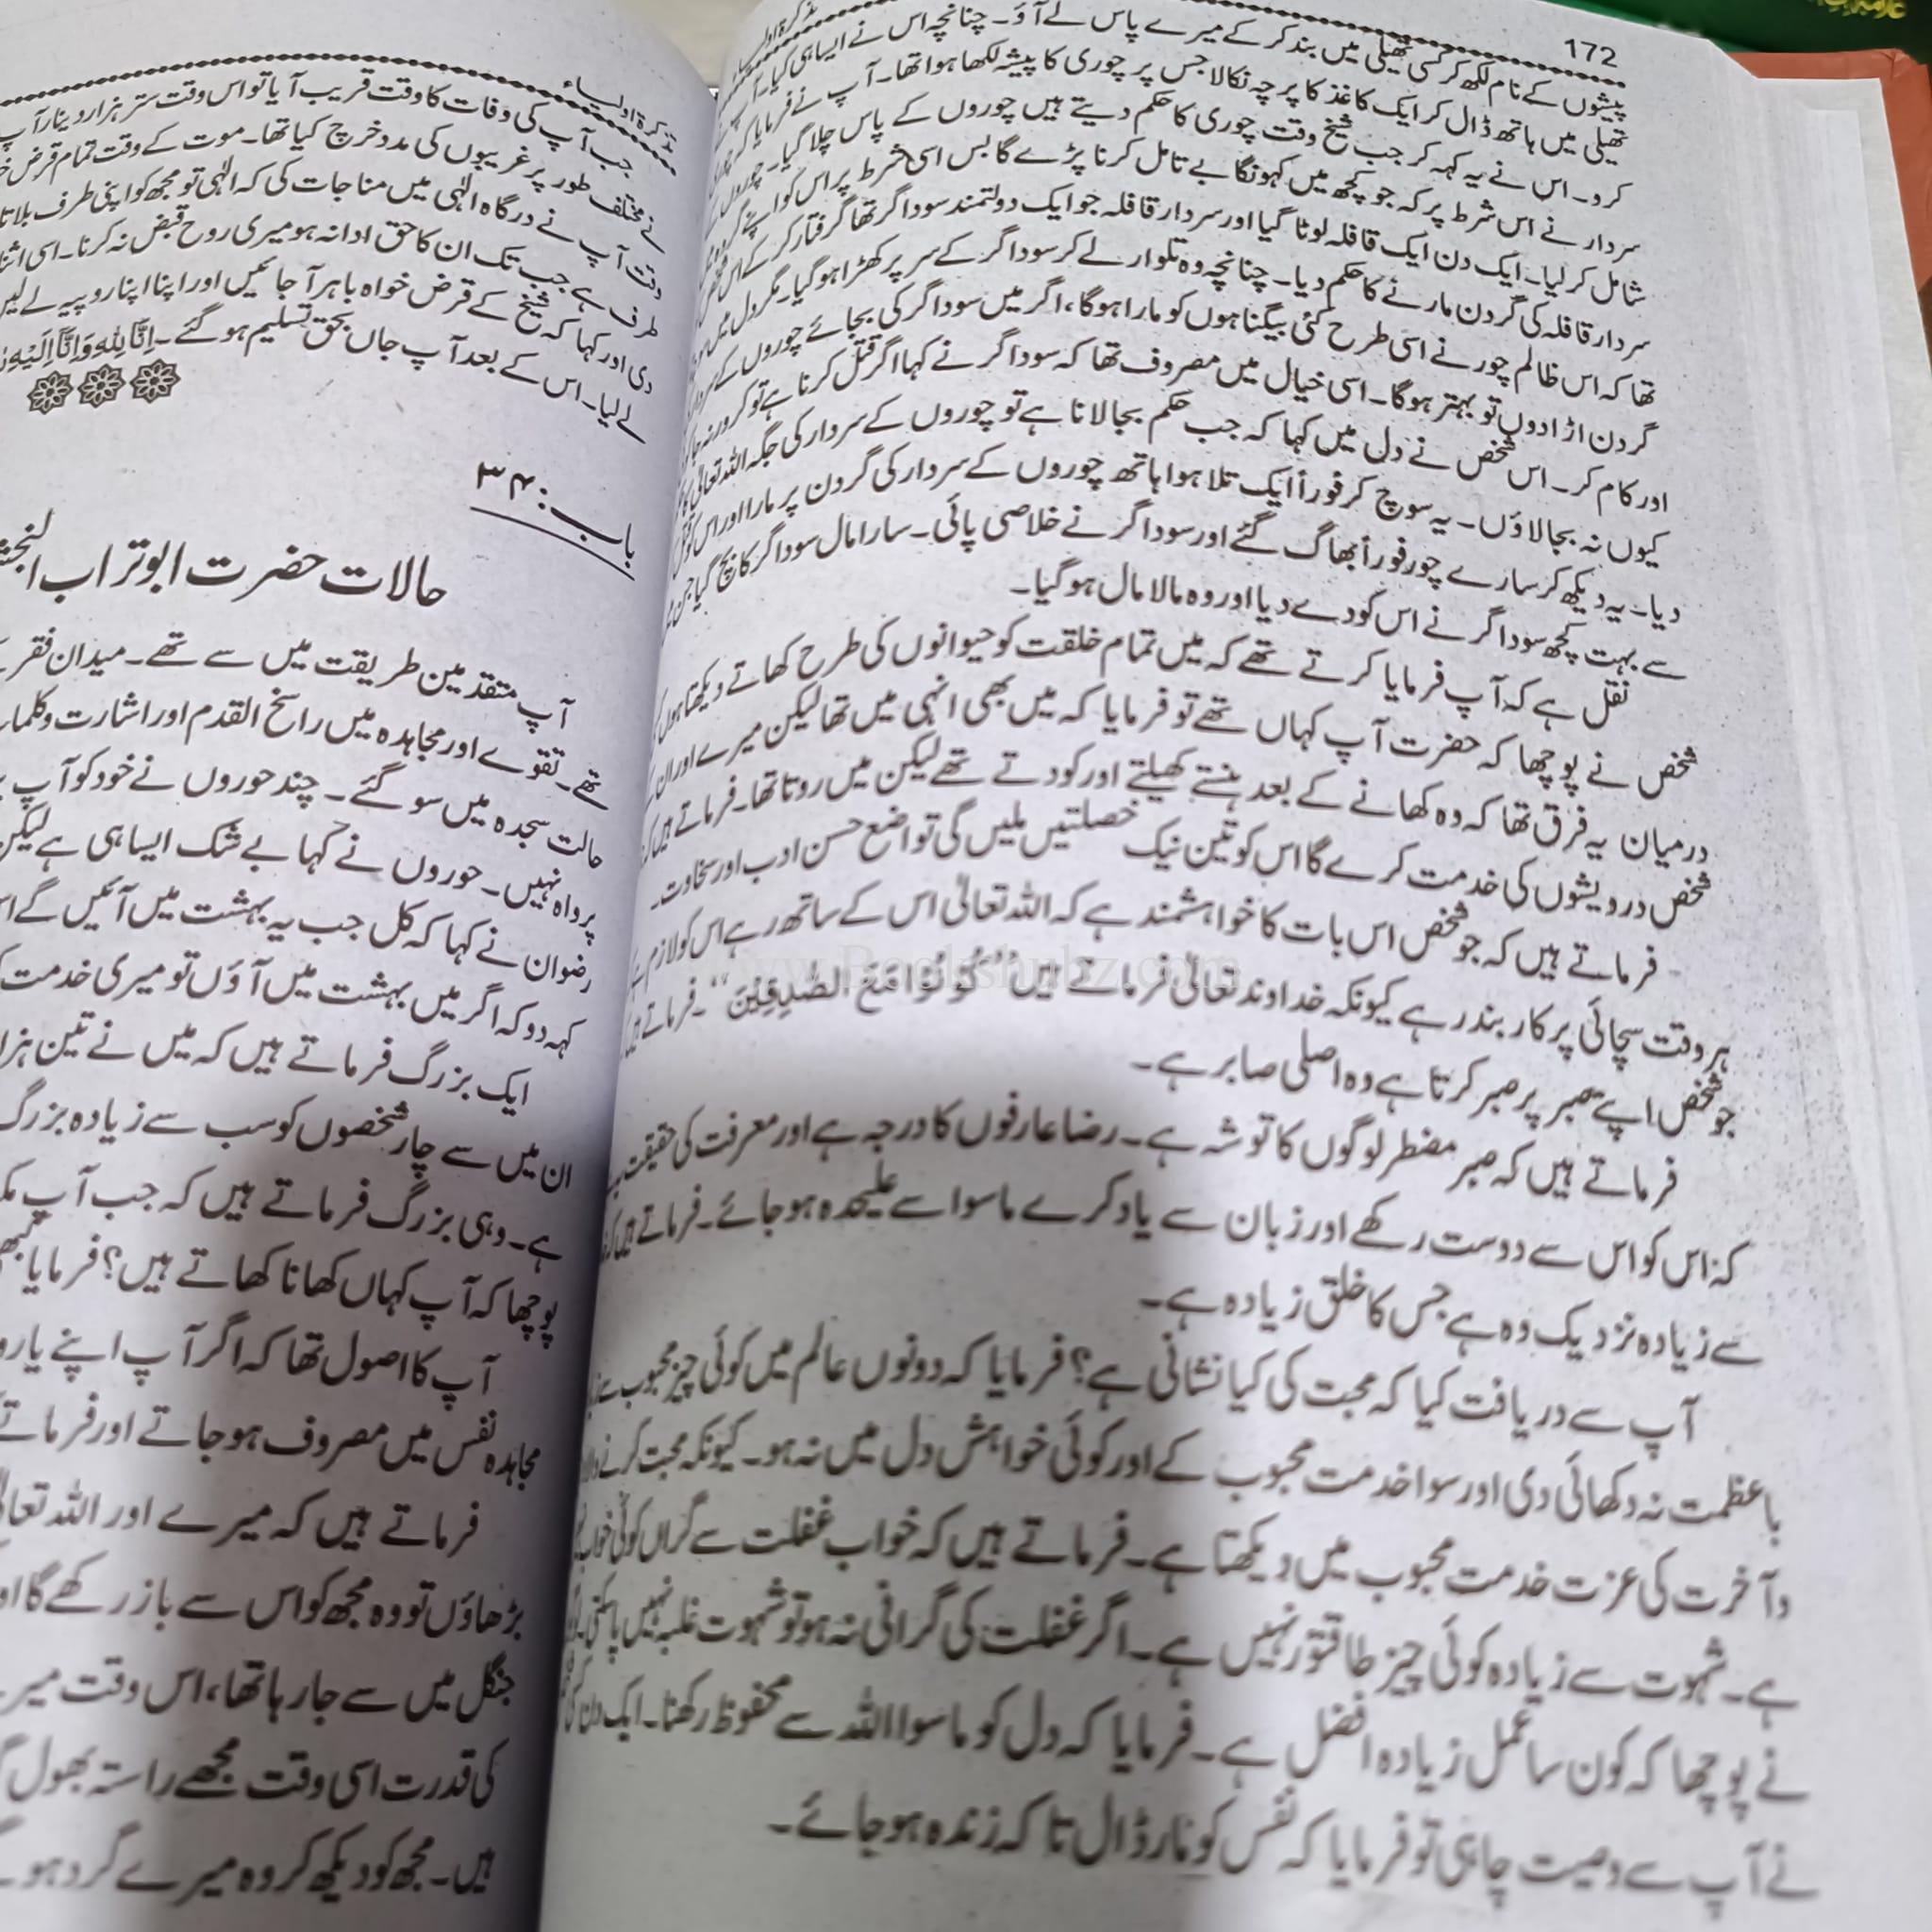 172
پیشوں کے نام لکھ کر کسی تھیلی میں بند کر کے میرے پاس لے آؤ۔ چنانچہ اس نے ایسا ہی کیا۔ آپ نے
تھیلی میں ہاتھ ڈال کر ایک کاغذ کا پرچہ نکالا جس پر چوری کا پیشہ لکھا ہوا تھا۔ آپ نے فرمایا کہ
کرو۔ اس نے یہ کہہ کر جب شیخ وقت چوری کا حکم دیتے ہیں چوروں کے پاس چلا گیا۔ چوروں کے
سردار نے اس شرط پر کہ جو کچھ میں کہونگا بے تامل کرنا پڑے گا بس اسی شرط پر اس کو اپنے گروہ میں
شامل کر لیا۔ ایک دن ایک قافلہ لوٹا گیا اور سردار قافلہ جو ایک دولتمند سوداگر تھا گرفتار کر کے اس شخص
سردار قافلہ کی گردن مارنے کا حکم دیا۔ چنانچہ وہ تلوار لے کر سوداگر کے سر پر کھڑا ہو گیا۔ مگر دل میں
تھا کہ اس ظالم چور نے اسی طرح کئی بیگناہوں کو مارا ہوگا، اگر میں سوداگر کی بجائے چوروں کے سردار
گردن اڑا دوں تو بہتر ہوگا۔ اسی خیال میں مصروف تھا کہ سوداگر نے کہا اگر قتل کرنا ہے تو کر ورنہ جا
اور کام کر۔ اس شخص نے دل میں کہا کہ جب حکم بجا لانا ہے تو چوروں کے سردار کی جگہ اللہ تعالیٰ کا حکم
کیوں نہ بجا لاؤں۔ یہ سوچ کر فوراً ایک تلا ہوا ہاتھ چوروں کے سردار کی گردن پر مارا اور اس کو قتل
دیا۔ یہ دیکھ کر سارے چور فوراً بھاگ گئے اور سوداگر نے خلاصی پائی۔ سارا مال سوداگر کا بچ گیا جن
سے بہت کچھ سوداگر نے اس کو دے دیا اور وہ مالا مال ہو گیا۔
نقل ہے کہ آپ فرمایا کرتے تھے کہ میں تمام خلقت کو حیوانوں کی طرح کھاتے دیکھتا ہوں
شخص نے پوچھا کہ حضرت آپ کہاں تھے تو فرمایا کہ میں بھی انہی میں تھا لیکن میرے اور ان کے
درمیان یہ فرق تھا کہ وہ کھانے کے بعد ہنستے کھیلتے اور کودتے تھے لیکن میں روتا تھا۔ فرماتے ہیں کہ
شخص درویشوں کی خدمت کرے گا اس کو تین نیک خصلتیں ملیں گی تواضع حسن ادب اور سخاوت۔
فرماتے ہیں کہ جو شخص اس بات کا خواہشمند ہے کہ اللہ تعالیٰ اس کے ساتھ رہے اس کو لازم ہے
ہر وقت سچائی پر کار بند رہے کیونکہ خداوند تعالیٰ فرماتے ہیں ”كُوْنُوْا مَعَ الصّٰدِقِيْنَ“۔ فرماتے ہیں
جو شخص اپنے صبر پر صبر کرتا ہے وہ اصلی صابر ہے۔
فرماتے ہیں کہ صبر مضطر لوگوں کا توشہ ہے۔ رضا عارفوں کا درجہ ہے اور معرفت کی حقیقت
کہ اس کو اس سے دوست رکھے اور زبان سے یاد کرے ماسوا سے علیحدہ ہو جائے۔ فرماتے ہیں کہ
سے زیادہ نزدیک وہ ہے جس کا خلق زیادہ ہے۔
آپ سے دریافت کیا کہ محبت کی کیا نشانی ہے؟ فرمایا کہ دونوں عالم میں کوئی چیز محبوب سے
باعظمت نہ دکھائی دی اور سوا خدمت محبوب کے اور کوئی خواہش دل میں نہ ہو۔ کیونکہ محبت کرنے والا
و آخرت کی عزت خدمت محبوب میں دیکھتا ہے۔ فرماتے ہیں کہ خواب غفلت سے گراں کوئی خواب
ہے۔ شہوت سے زیادہ کوئی چیز طاقتور نہیں ہے۔ اگر غفلت کی گرانی نہ ہو تو شہوت غلبہ نہیں پا سکتی۔
نے پوچھا کہ کون سا عمل زیادہ افضل ہے۔ فرمایا کہ دل کو ماسوا اللہ سے محفوظ رکھنا۔ ایک دن
نے آپ سے وصیت چاہی تو فرمایا کہ نفس کو مار ڈال تا کہ زندہ ہو جائے۔
تذکرۃ اولیاء
جب آپ کی وفات کا وقت قریب آیا تو اس وقت ستر ہزار دینار آپ
نے مختلف طور پر غریبوں کی مدد خرچ کیا تھا۔ موت کے وقت تمام قرض
وقت آپ نے درگاہ الٰہی میں مناجات کی کہ الٰہی تو مجھ کو اپنی طرف بلاتا
طرف ہے جب تک ان کا حق ادا نہ ہو میری روح قبض نہ کرنا۔ اسی اثنا
دی اور کہا کہ شیخ کے قرض خواہ باہر آ جائیں اور اپنا اپنا روپیہ لے لیں
لے لیا۔ اس کے بعد آپ جاں بحق تسلیم ہو گئے۔ اِنَّا لِلّٰهِ وَاِنَّآ اِلَيْهِ
باب: ۳۴
حالات حضرت ابو تراب
آپ متقدمین طریقت میں سے تھے۔ میدان فقر
تھے۔ تقوے اور مجاہدہ میں راسخ القدم اور اشارت و کلمات
حالت سجدہ میں سو گئے۔ چند حوروں نے خود کو آپ
پرواہ نہیں۔ حوروں نے کہا بے شک ایسا ہی ہے لیکن
رضوان نے کہا کہ کل جب یہ بہشت میں آئیں گے
کہہ دو کہ اگر میں بہشت میں آؤں تو میری خدمت
ایک بزرگ فرماتے ہیں کہ میں نے تین ہزار
ان میں سے چار شخصوں کو سب سے زیادہ بزرگ
ہے۔ وہی بزرگ فرماتے ہیں کہ جب آپ
پوچھا کہ آپ کہاں کھانا کھاتے ہیں؟ فرمایا
آپ کا اصول تھا کہ اگر آپ اپنے
مجاہدہ نفس میں مصروف ہو جاتے اور فرماتے
فرماتے ہیں کہ میرے اور اللہ تعالیٰ
بڑھاؤں تو وہ مجھ کو اس سے باز رکھے گا
جنگل میں سے جا رہا تھا، اس وقت
کی قدرت اسی وقت مجھے راستہ بھول
ہیں۔ مجھ کو دیکھ کر وہ میرے گرد ہو